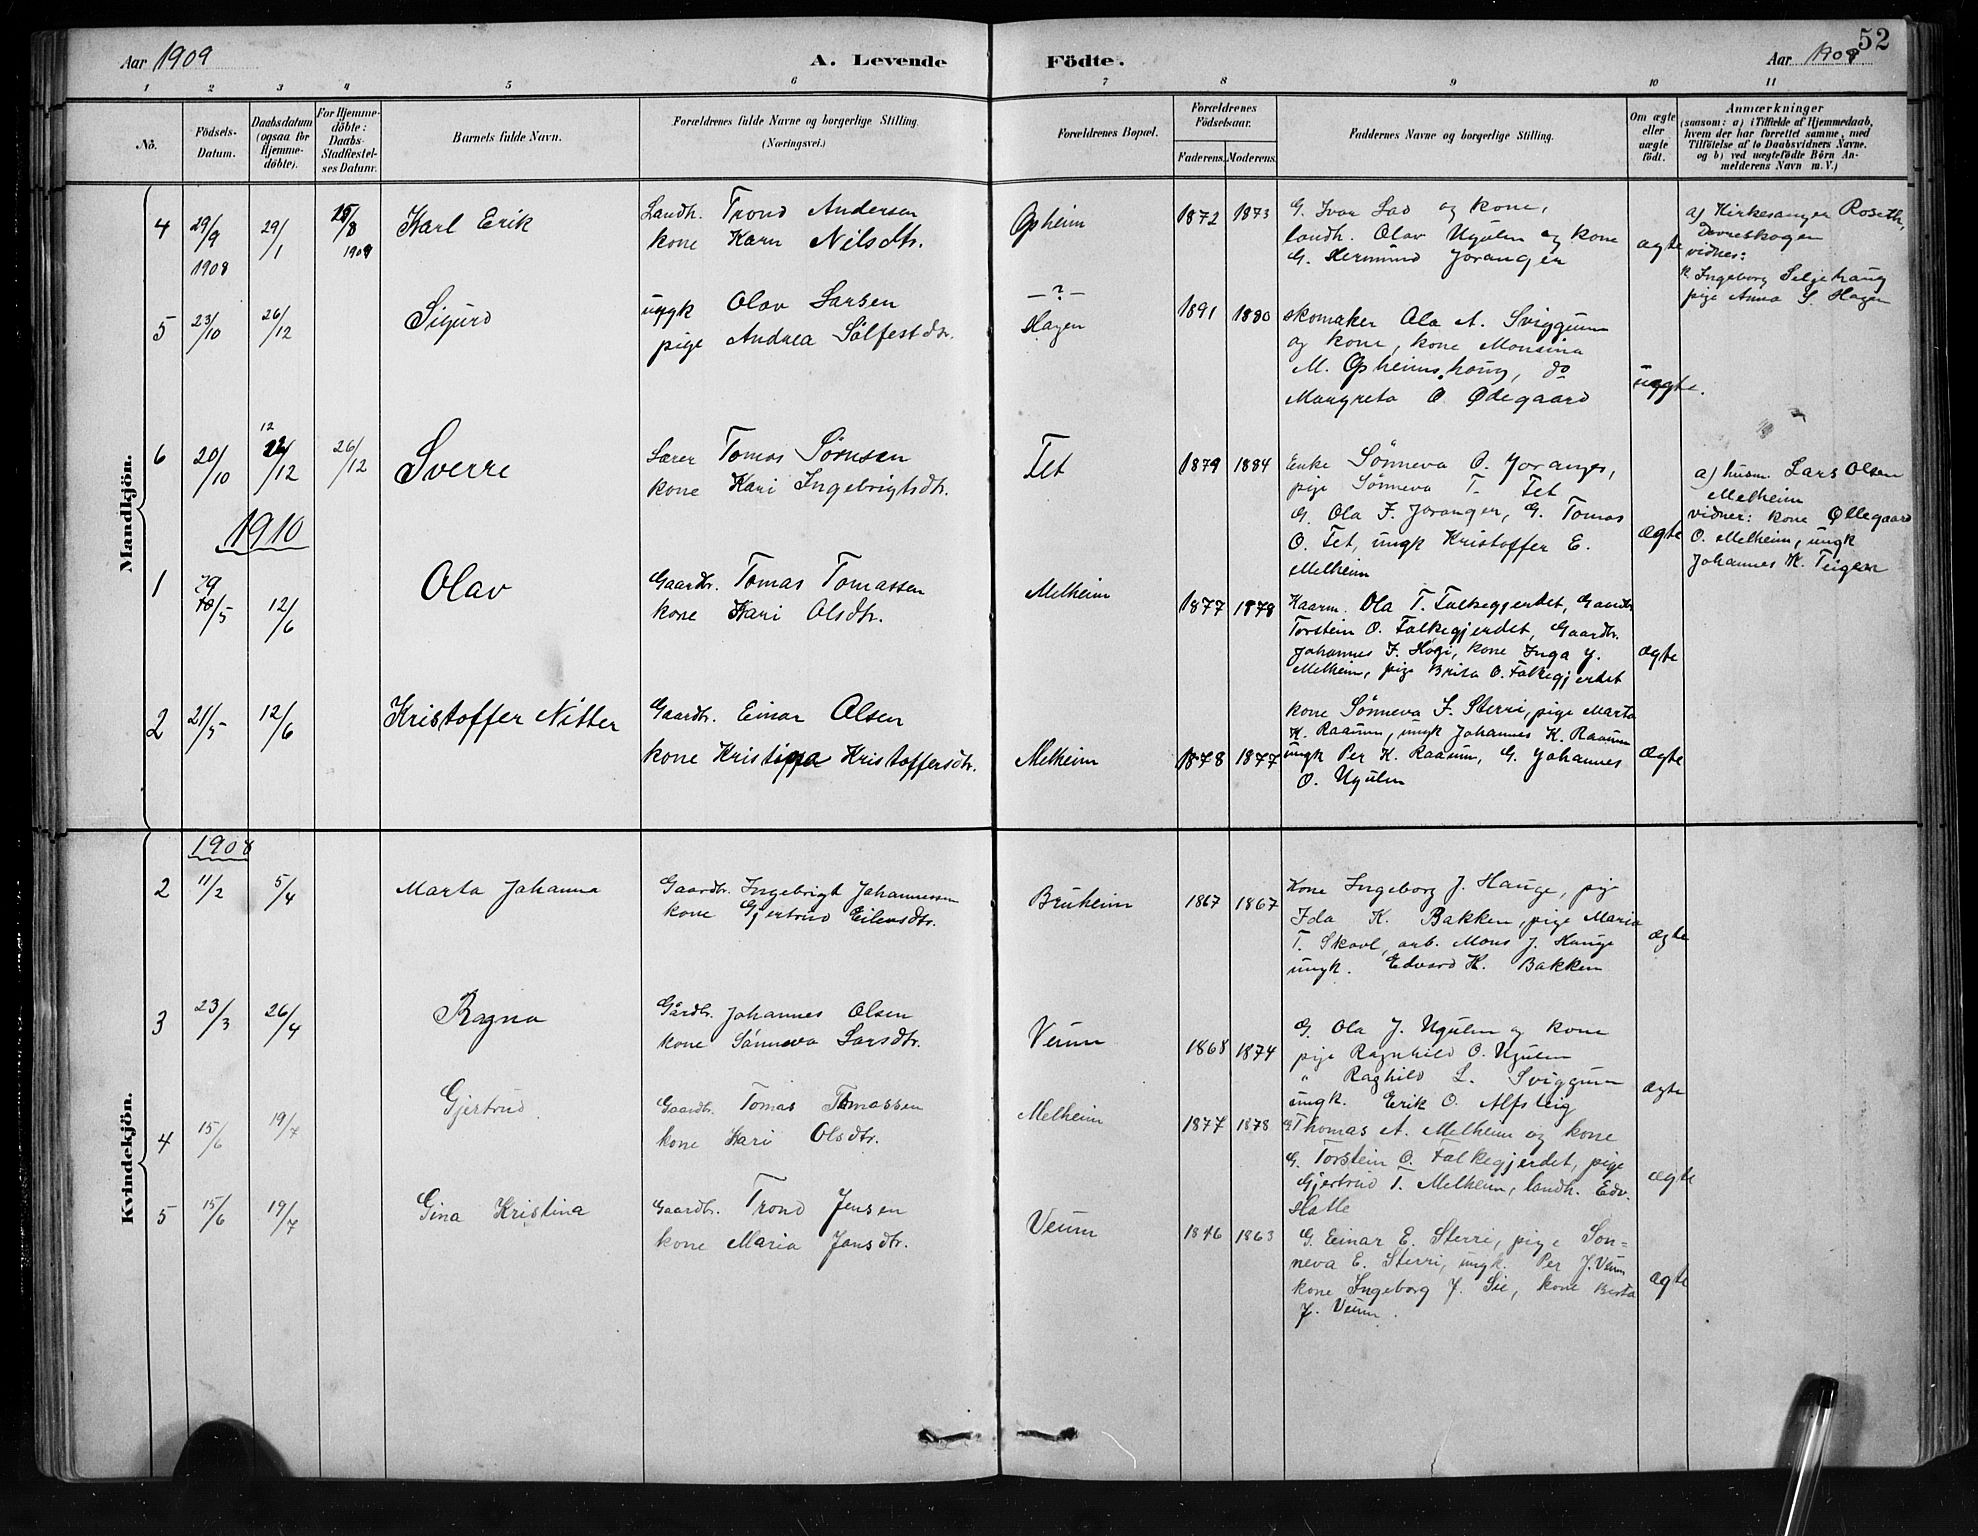 52
Aar 1909
A. Levende
Födte.
Aar 1908
1 2 3 4 5 6 7 8 9 10 11
No.
Födsels-Datum.
Daabsdatum (ogsaa for Hjemmedöbte).
For Hjemmedöbte: Daabs-Stadfæstelses Datum.
Barnets fulde Navn.
Forældrenes fulde Navne og borgerlige Stilling.
(Næringsvei.)
Forældrenes Bopæl.
Forældrenes Födselsaar.
Faderens. Moderens.
Faddernes Navne og borgerlige Stilling.
Om ægte eller uægte født.
Anmærkninger
(saasom: a) i Tilfælde af Hjemmedaab, hvem der har forrettet samme, med Tilföielse af to Daabsvidners Navne. og b) ved uægtefödte Börn Anmelderens Navn m. V.)
Mandkjön.
4 29/9 1908 29/1 /8 1908 Karl Erik
Landh. Trond Andersen
kone Karn Nilsdtr.
Opheim 1872 1873
G. Ivar Lad og kone,
landh. Olav Ugulen og kone
G. Hermund Joranger
ægte
a) Kirkesanger Roseth,
vidnes:
k. Ingeborg Seljehaug
pige Anna S. Hagen
5 23/10 26/12 Sigurd
ungk Olav Larsen
pige Andrea Sølfestdtr.
—?—
Hagen
1891 1880
skomaker Ola A. Sviggum
og kone, kone Monsina
M. Opheimshaug, do
Margreta O. Ødegaard
uægte.
6 20/10 /12 26/12 Sverre
Lærer Tomas Sørnsen
kone Kari Ingebrigtsdtr.
Tet 1879 1884
Enke Sønneva O. Joranger,
pige Sønneva T. Tet
G. Ola F. Joranger, G. Tomas
O. Tet, ungk Kristoffer E.
Melheim
ægte
a) husm. Lars Olsen
Melheim
vidner: kone Øllegaard
O. Melheim, ungk
Johannes K. Teigen
1910
1 29/5 12/6 Olav
Gaardbr. Tomas Tomassen
kone Kari Olsdtr.
Melheim 1877 1878
Kaarm. Ola T. Falkegjerdet, Gaardbr.
Torstein O. Falkegjerdet, Gaardbr.
Johannes F. Høgi, kone Inga J.
Melheim, pige Brita O. Falkegjerdet
ægte
2 21/5 12/6 Kristoffer Nitter
Gaardbr. Einar Olsen
kone Kristina Kristoffersdtr.
Melheim 1878 1877
kone Sønneva F. Sterri, pige Marta
K. Raaum, ungk Johannes K. Raaum
ungk Per K. Raaum, G. Johannes
O. Ugulen
ægte
Kvindekjön.
1908
2 11/2 5/4 Marta Johanna
Gaardbr. Ingebrigt Johannessen
kone Gjertrud Eilensdtr.
Bruheim 1867 1867
Kone Ingeborg J. Hauge, pige
Ida K. Bakken, pige Maria
T. Skavl, arb. Mons J. Hauge
ungk. Edvard K. Bakken
ægte
3 23/3 26/4 Ragna
Gårdbr. Johannes Olsen
kone Sønneva Larsdtr.
Veum 1868 1874
G. Ola J. Ugulen og kone
pige Ragnhild O. Ugulen
" Raghild L. Sviggum
ungk. Erik O. Alfsteig
ægte
4 15/6 19/7 Gjertrud
Gaardbr. Tomas Tomassen
kone Kari Olsdtr.
Melheim 1877 1878
G Thomas A. Melheim og kone
G. Torstein O. Falkegjerdet, pige
Gjertrud T. Melheim, landh. Edv.
Hatle
ægte
5 15/6 19/7 Gina Kristina
Gaardbr. Trond Jensen
kone Maria Jensdtr.
Veum 1846 1863
G. Einar E. Sterri, pige Sön=
neva E. Sterri, ungk. Per J. Veum
kone Ingeborg J. Sie, kone Berta
J. Veum.
ægte